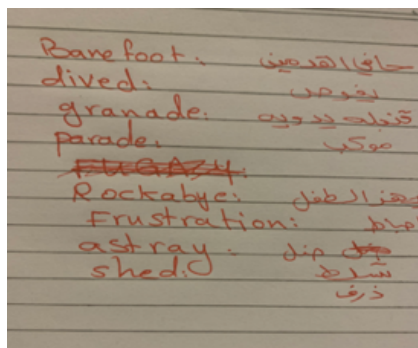 Barefoot: حافي القدمين
dived: يغوص
granade: قنبله يدويه
parade: موكب
FUGAZY
Rockabye: يهز الطفل
Frustration:
astray: ضل
shed:
ذرف